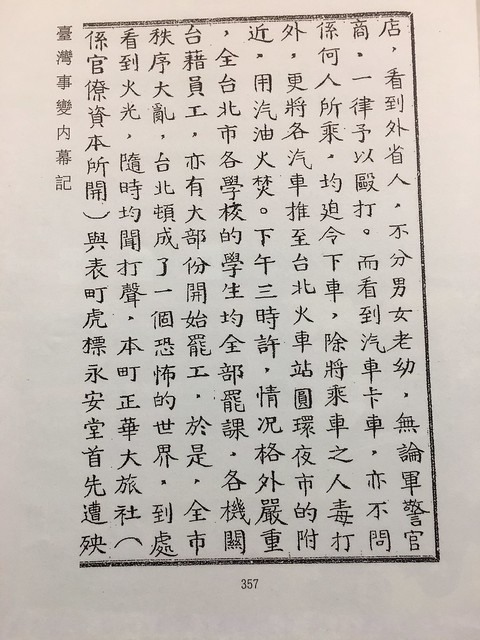 店，看到外省人，不分男女老幼，無論軍警官
商，一律予以毆打。而看到汽車卡車，亦不問
係何人所乘，均迫令下車，除將乘車之人毒打
外，更將各汽車推至台北火車站圓環夜市的附
近，用汽油火焚。下午三時許，情況格外嚴重
，全台北市各學校的學生均全部罷課，各機關
台籍員工，亦有大部份開始罷工，於是，全市
秩序大亂，台北頓成了一個恐怖的世界，到處
看到火光，隨時均聞打聲，本町正華大旅社（
係官僚資本所開）與表町虎標永安堂首先遭殃
臺灣事變內幕記
357